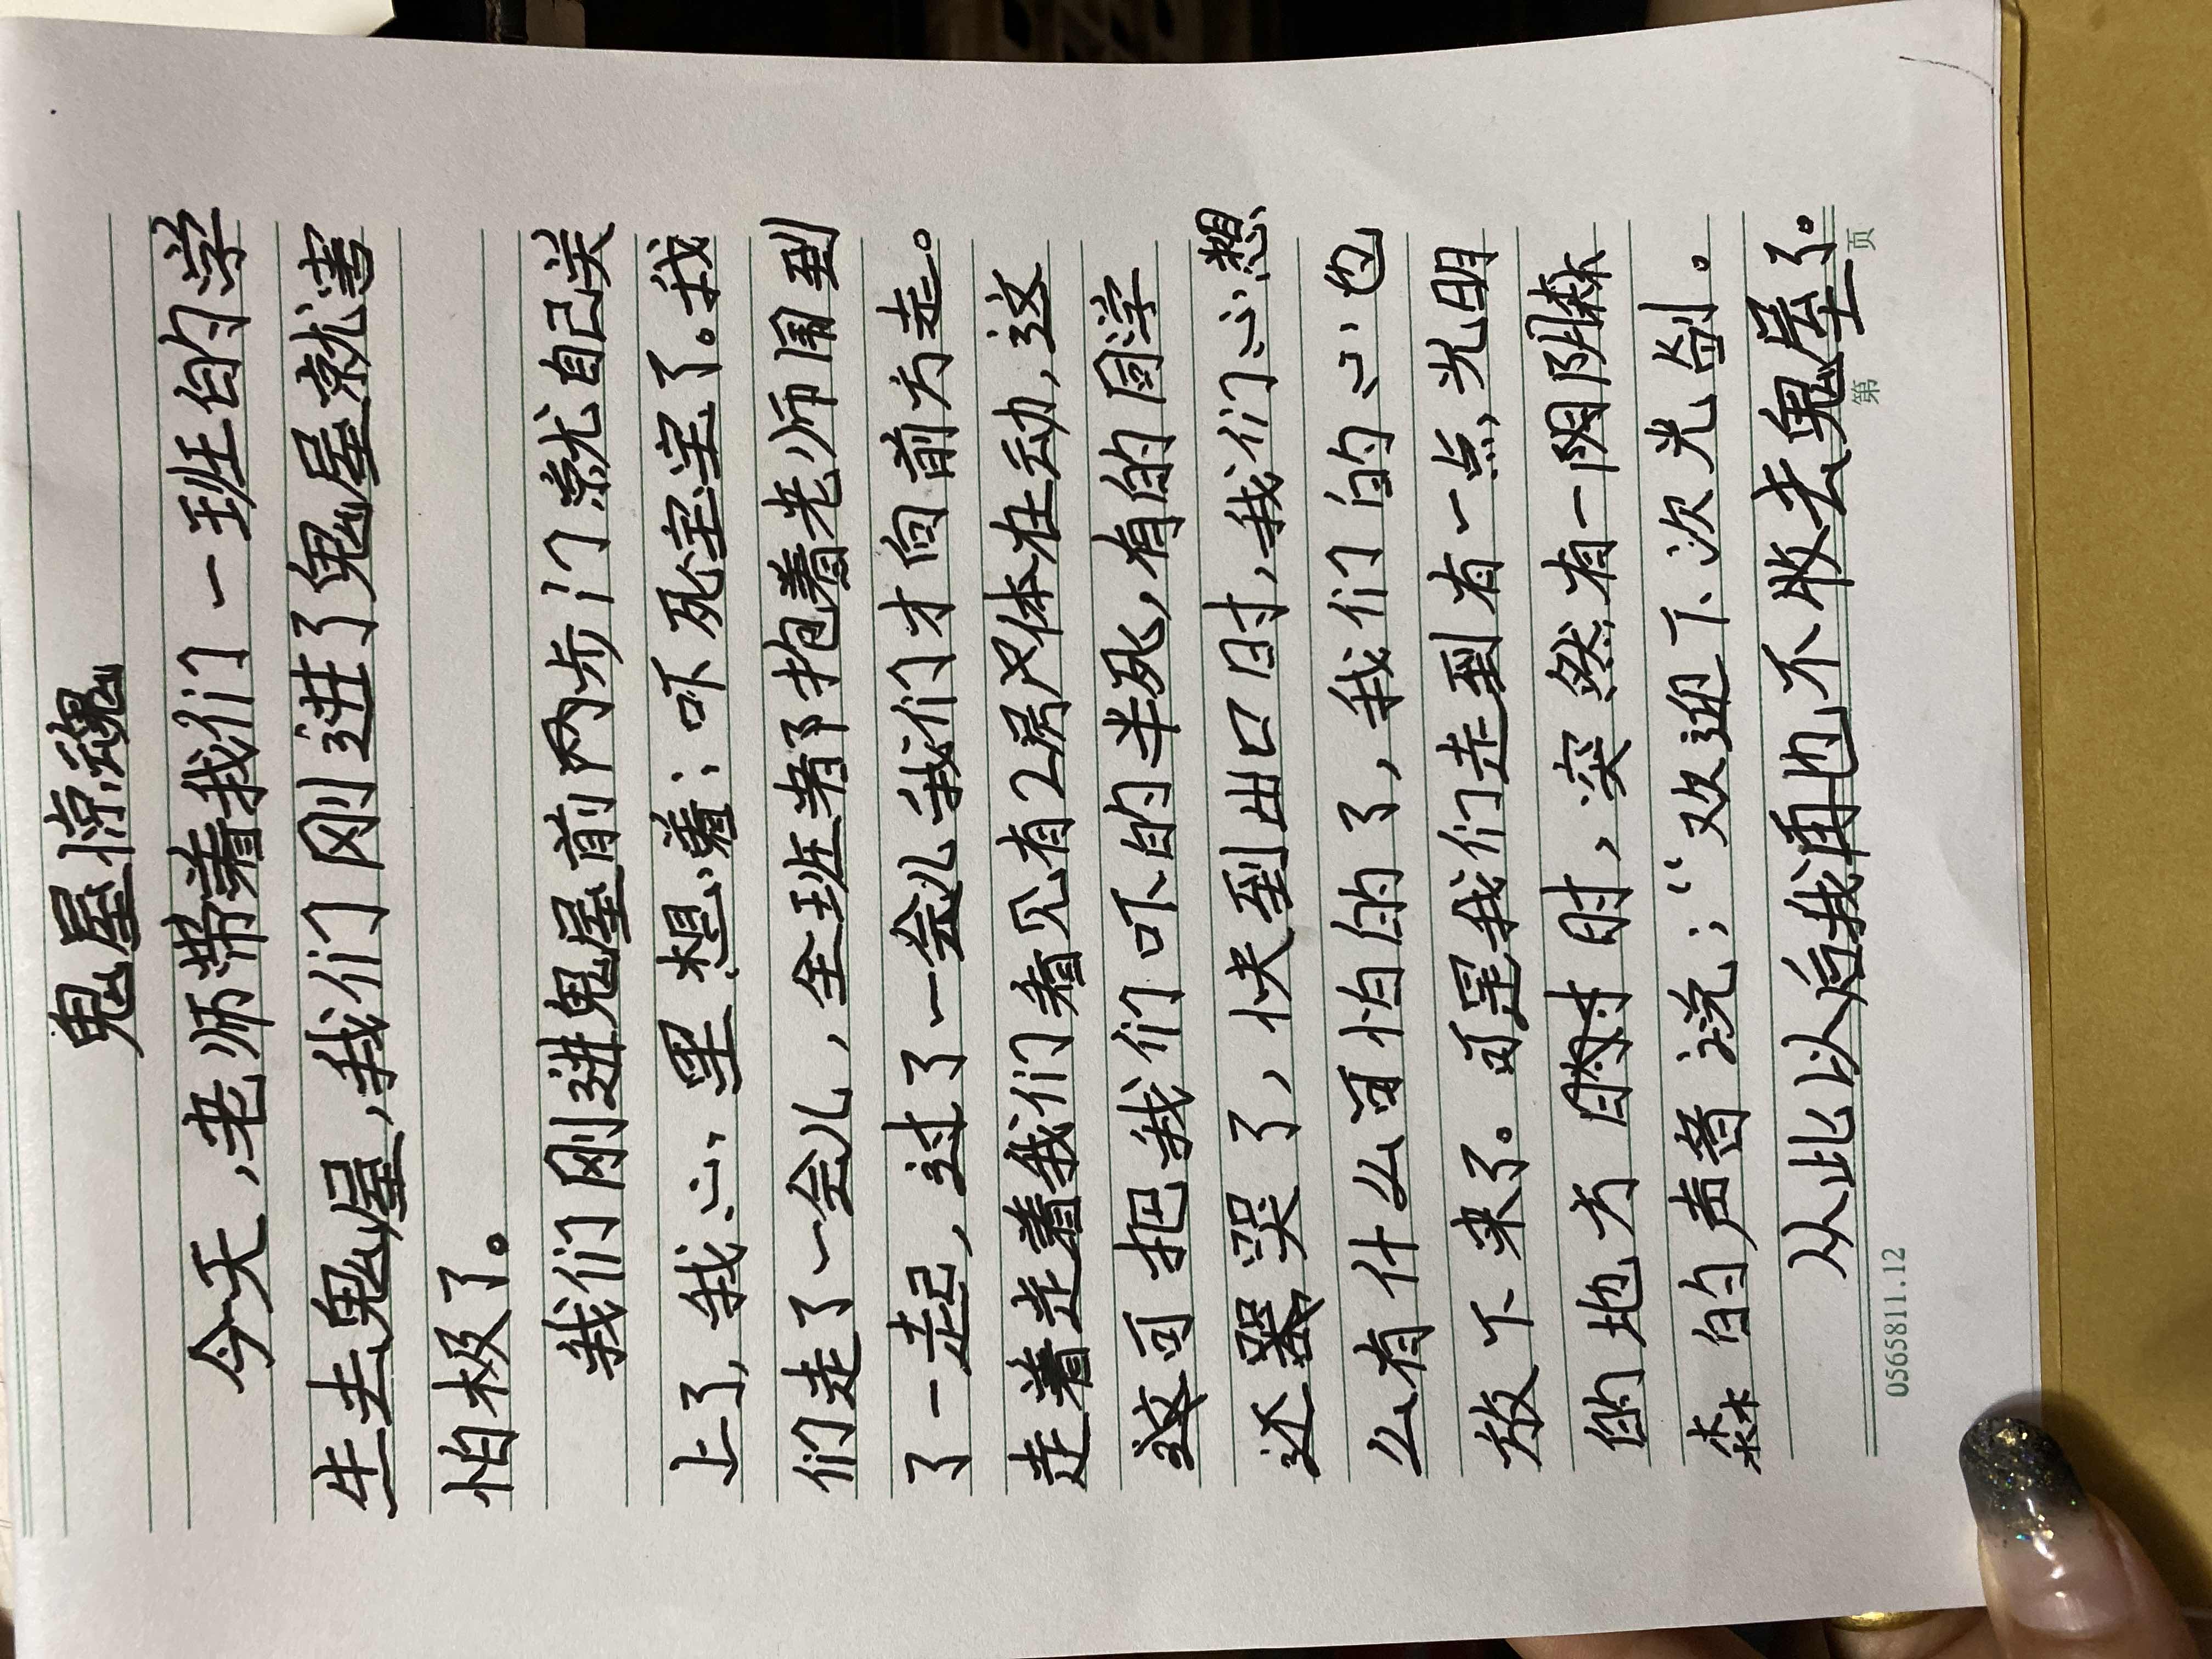 鬼屋惊魂
今天,老师带着我们一班的学
生去鬼屋,我们刚进了鬼屋就害
怕极了。
我们刚进鬼屋前两步门就自己关
上了,我心里想着:吓死宝宝了。我
们走了一会儿,全班都抱着老师围到
了一起,过了一会儿我们才向前方走。
走着走着我们看见有2居尸体在动,这
这可把我们吓的半死,有的同学
还哭了,快到出口时,我们心想
么有什么可怕的了,我们的心也
放下来了。可是我们走到有一点光明
的地方时,突然有一阴阴森
森的声音说:“欢迎下次光临。
从此以后我再也不敢去鬼屋了。
0565811.12 第 页